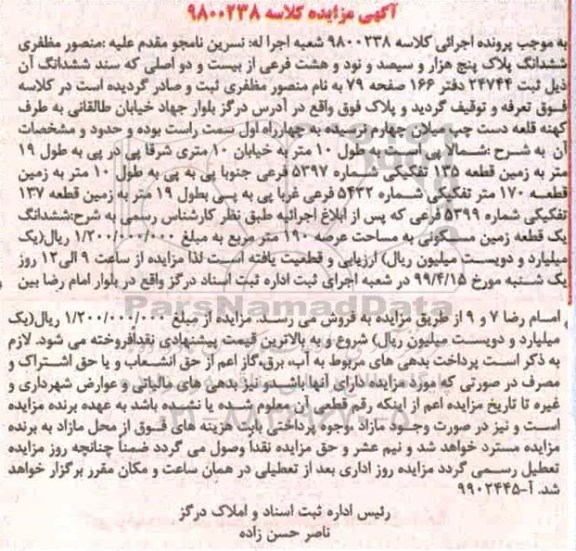 آگهی مزایده کلاسه ۹۸۰۰۲۳۸
به موجب پرونده اجرائی کلاسه ۹۸۰۰۲۳۸ شعبه اجرا له: نسرین نامجو مقدم علیه :منصور مظفری
ششدانگ پلاک پنج هزار و سیصد و نود و هشت فرعی از بیست و دو اصلی که سند ششدانگ آن
ذیل ثبت ۲۴۷۴۴ دفتر ۱۶۶ صفحه ۷۹ به نام منصور مظفری ثبت و صادر گردیده است در کلاسه
فوق تعرفه و توقیف گردید و پلاک فوق واقع در آدرس درگز بلوار جهاد خیابان طالقانی به طرف
کهنه قلعه دست چپ میلان چهارم نرسیده به چهارراه اول سمت راست بوده و حدود و مشخصات
آن به شرح :شمالا پی است به طول ۱۰ متر به خیابان ۱۰ متری شرقا پی در پی به طول ۱۹
متر به زمین قطعه ۱۳۵ تفکیکی شماره ۵۳۹۷ فرعی جنوبا پی به پی به طول ۱۰ متر به زمین
قطعه ۱۷۰ متر تفکیکی شماره ۵۴۳۲ فرعی غربا پی به پی بطول ۱۹ متر به زمین قطعه ۱۳۷
تفکیکی شماره ۵۳۹۹ فرعی که پس از ابلاغ اجرائیه طبق نظر کارشناس رسمی به شرح:ششدانگ
یک قطعه زمین مسکونی به مساحت عرصه ۱۹۰ متر مربع به مبلغ ۱/۲۰۰/۰۰۰/۰۰۰ ریال(یک
میلیارد و دویست میلیون ریال) ارزیابی و قطعیت یافته است لذا مزایده از ساعت ۹ الی۱۲ روز
یک شنبه مورخ ۹۹/۴/۱۵ در شعبه اجرای ثبت اداره ثبت اسناد درگز واقع در بلوار امام رضا بین
ParsNamadData
امام رضا ۷ و ۹ از طریق مزایده به فروش می رسد. مزایده از مبلغ ۱/۲۰۰/۰۰۰/۰۰۰ ریال(یک
میلیارد و دویست میلیون ریال) شروع و به بالاترین قیمت پیشنهادی نقدافروخته می شود. لازم
به ذکر است پرداخت بدهی های مربوطه به آب، برق،گاز اعم از حق انشعاب و یا حق اشتراک و
مصرف در صورتی که مورد مزایده دارای آنها باشدو نیز بدهی های مالیاتی و عوارض شهرداری و
غیره تا تاریخ مزایده اعم از اینکه رقم قطعی آن معلوم شده یا نشده باشد به عهده برنده مزایده
است و نیز در صورت وجود مازاد ،وجوه پرداختی بابت هزینه های فوق از محل مازاد به برنده
مزایده مسترد خواهد شد و نیم عشر و حق مزایده نقدا وصول می گردد ضمناً چنانچه روز مزایده
تعطیل رسمی گردد مزایده روز اداری بعد از تعطیلی در همان ساعت و مکان مقرر برگزار خواهد
شد. آ-۹۹۰۲۴۴۵
رئیس اداره ثبت اسناد و املاک درگز
ناصر حسن زاده